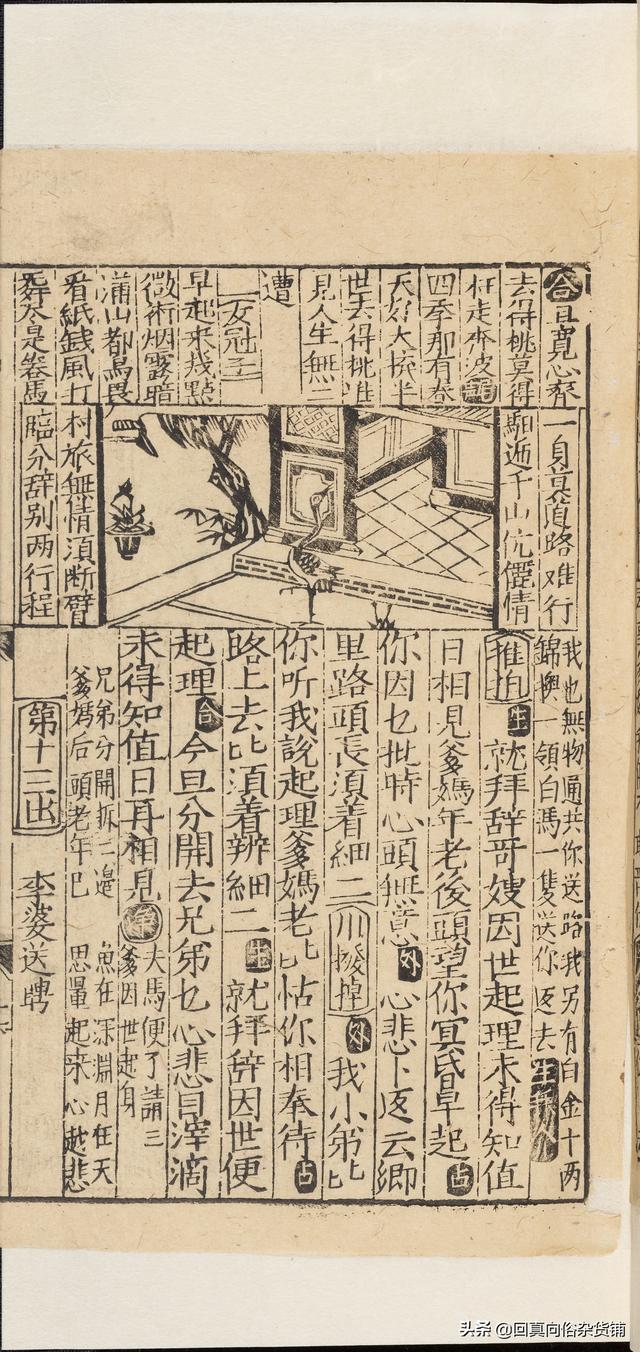 合且寬心齊
去得桃莫得
枉走
四季那有春
天好大半
世去得桃
見人生無二
遭
女冠子
早起來幾點
微術烟露暗
滿山都鳥畏
看紙錢風打
尽是卷馬
一身莫道路难行
馹逓千山伉儷情
村旅無情湏断臂
臨分辞别两行程
我也無物通共你送路我另有白金十两
錦襖一領白馬一隻送你返去生
推拍生就拜辞哥嫂因世起理未得知值
日相見爹媽年老後頭望你冥昏早起占
你因乜批時心頭無意外心悲卜返云卿
里路頭長湏着細二川撥掉外我小弟比
你听我說起理爹媽老比怙你相奉待占
路上去比湏着辨細二生就拜辞因世便
起理合今旦分開去兄弟乜心悲目滓滴
未得知值日再相見净夫馬便了請三
爹因世起身
兄弟分開拆二邉 魚在深淵月在天
爹媽后頭老年巳 思量起來心越悲
第十三出 李婆送聘
头条 @回真向俗杂货铺